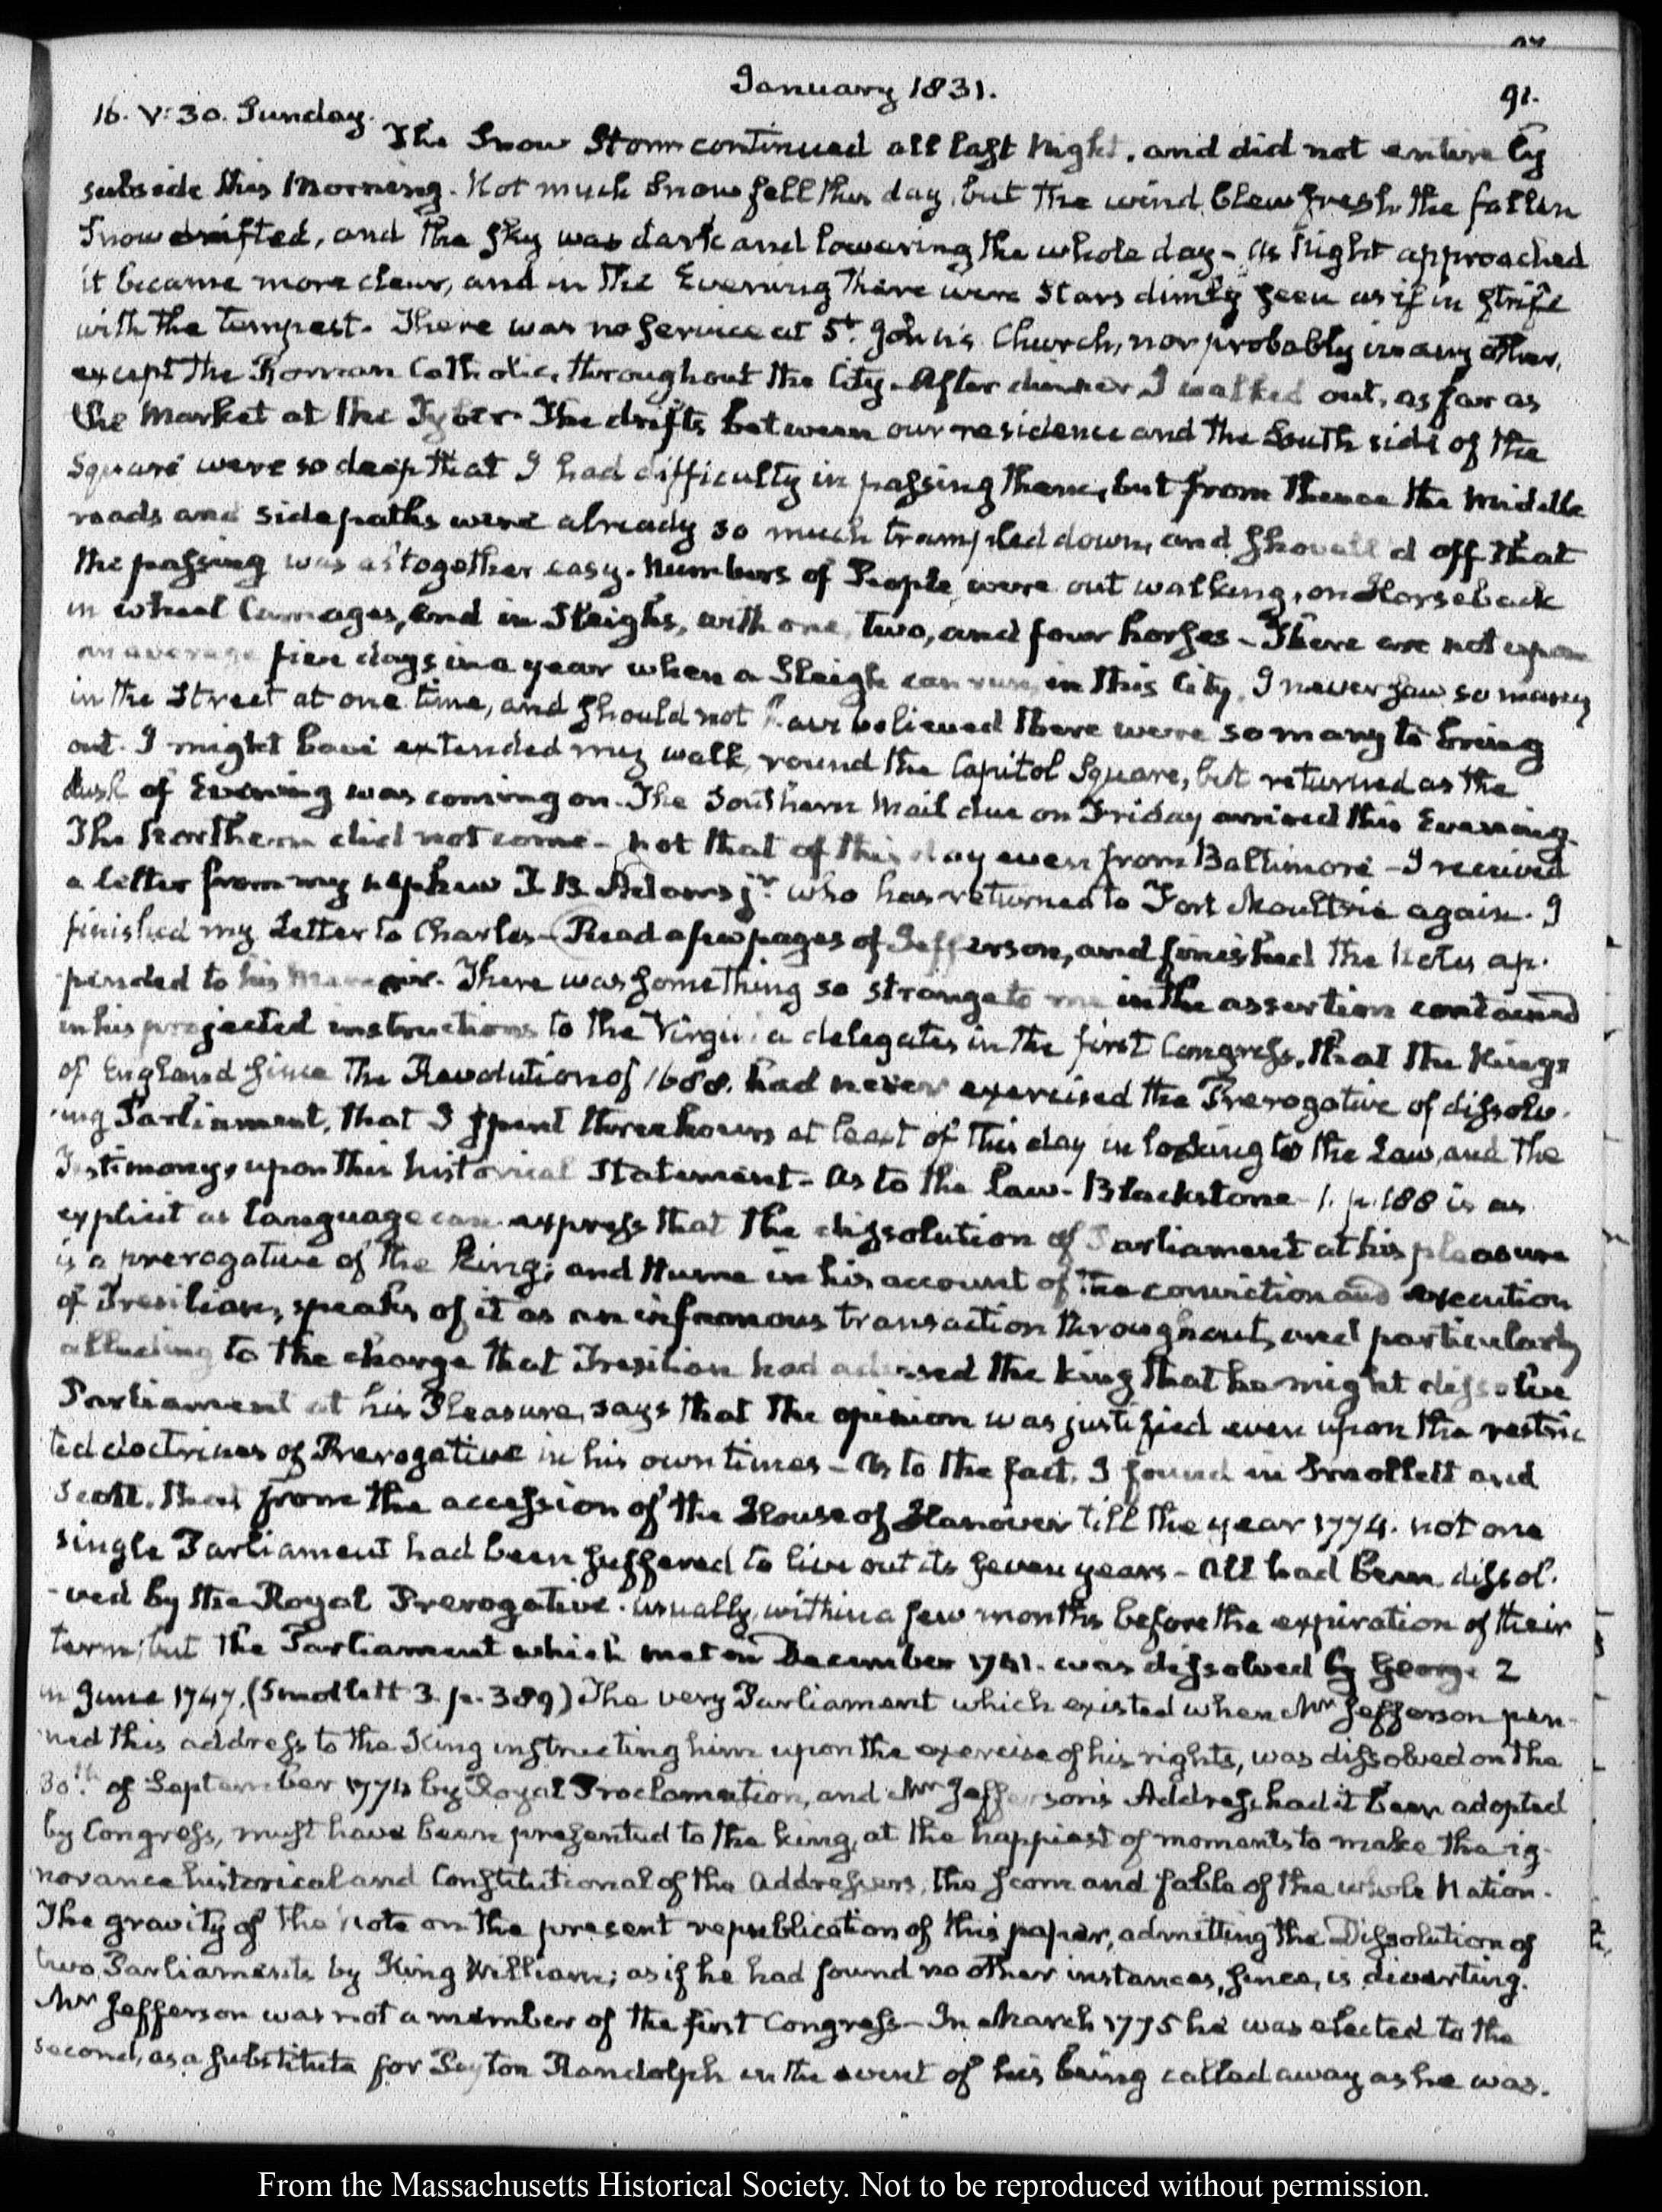 January 1831.
91.
16. V:30. Sunday.
The Snow Storm continued all last Night, and did not entirely
subside this Morning. Not much Snow fell this day, but the wind blew fresh, the fallen
Snow drifted, and the sky was dark and lowering the whole day - As Night approached
it became more clear, and in the Evening there were Stars dimly seen as if in strife
with the tempest. There was no service at St. John's Church, nor probably in any other,
except the Roman Catholic, throughout the City. After dinner I walked out, as far as
the Market at the Tyber. The drifts between our residence and the South side of the
Square were so deep that I had difficulty in passing them, but from thence the middle
roads and side paths were already so much trampled down, and shovell'd off that
the passing was altogether easy. Numbers of People were out walking, on Horseback
in wheel Carriages, and in Sleighs, with one, two, and four horses - There are not upon
an average five days in a year when a Sleigh can run in this City. I never saw so many
in the Street at one time, and should not have believed there were so many to bring
out. I might have extended my walk, round the Capitol Square, but returned as the
dusk of Evening was coming on. The Southern Mail due on Friday arrived this Evening.
The Northern did not come - not that of this day even from Baltimore - I received
a letter from my nephew J. B. Adams jr. who has returned to Fort Moultrie again. I
finished my Letter to Charles - Read a few pages of Jefferson, and finished the Notes ap-
pended to his Memoir. There was something so strange to me in the assertion contained
in his projected instructions to the Virginia delegates in the first Congress, that the Kings
of England since the Revolution of 1688. had never exercised the Prerogative of dissolv-
ing Parliament, that I spent three hours at least of this day in looking to the Law, and the
Testimony, upon this historical Statement - As to the law - Blackstone - 1. p. 188 is as
explicit as language can express that the dissolution of Parliament at his pleasure
is a prerogative of the King; and Hume in his account of the conviction and execution
of Tresilian, speaks of it as an infamous transaction throughout, and particularly
alluding to the charge that Tresilian had advised the King that he might dissolve
Parliament at his Pleasure, says that the opinion was justified even upon the restric
ted doctrines of Prerogative in his own times - As to the fact, I found in Smollett and
Scott, that from the accession of the House of Hanover till the year 1774. not one
single Parliament had been suffered to live out its seven years - All had been dissol-
-ved by the Royal Prerogative. usually within a few months before the expiration of their
term; but the Parliament which met in December 1741. was dissolved by George 2
in June 1747. (Smollett 3. p. 389) The very Parliament which existed when Mr Jefferson pen-
ned this address to the King instructing him upon the exercise of his rights, was dissolved on the
30th. of September 1774 by Royal Proclamation, and Mr Jefferson's Address, had it been adopted
by Congress, must have been presented to the king, at the happiest of moments to make the ig-
norance historical and Constitutional of the Addressers, the scorn and fable of the whole Nation.
The gravity of the Note on the present republication of this paper, admitting the Dissolution of
two Parliaments by King William; as if he had found no other instances, since, is diverting.
Mr Jefferson was not a member of the first Congress - In March 1775 he was elected to the
second, as a substitute for Peyton Randolph in the event of his being called away as he was.
From the Massachusetts Historical Society. Not to be reproduced without permission.